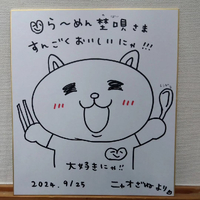 ら〜めん 埜唄さま
すんごくおいしいにゃ!!!
大好きにゃ!!
2024.9/25
より